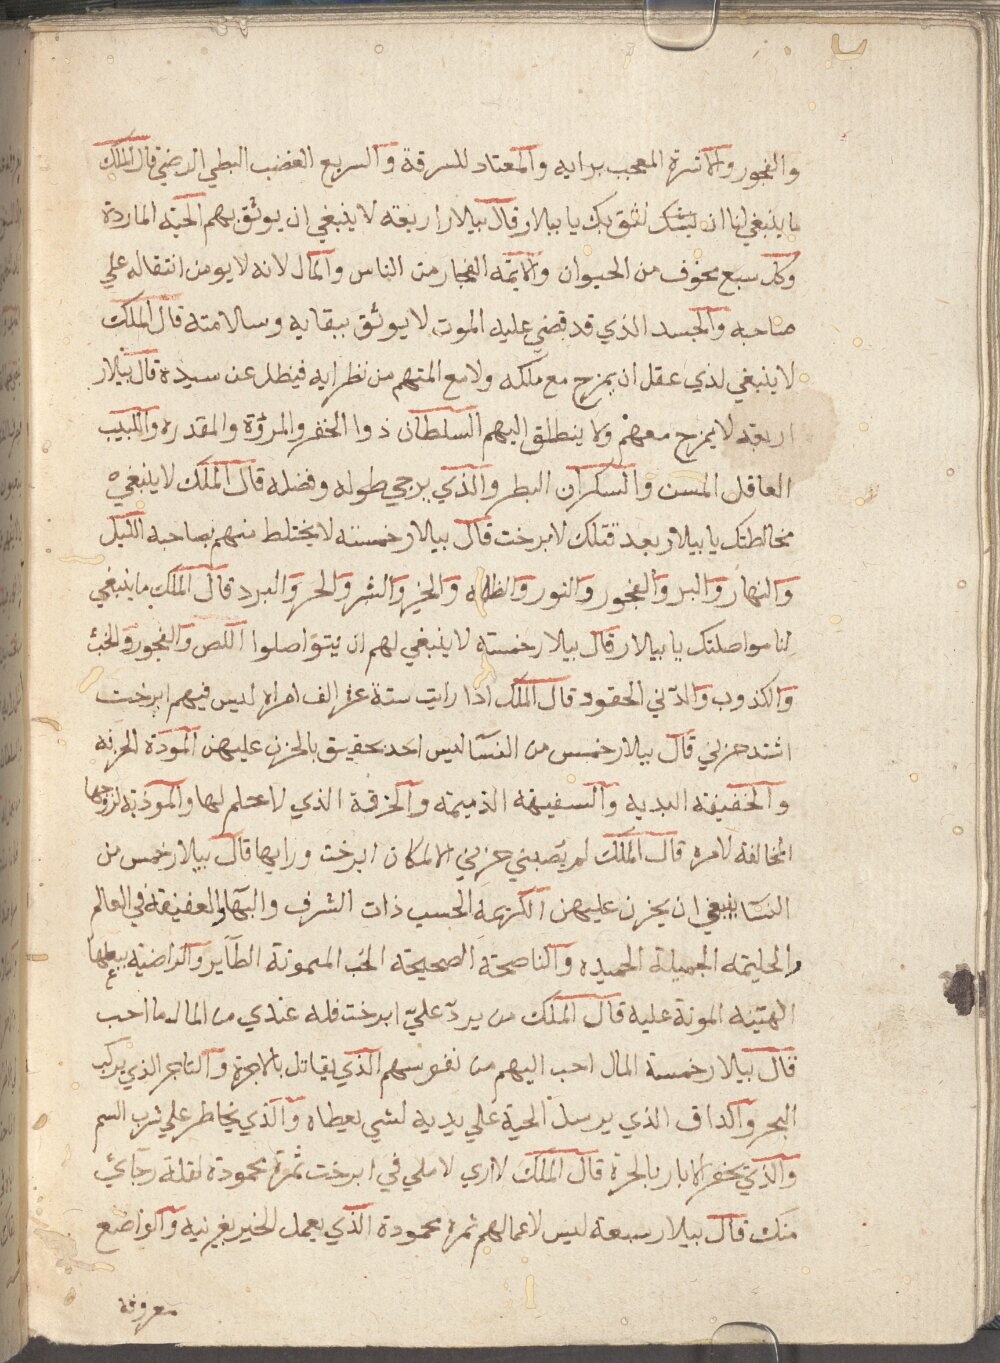 والفجور والاشرة المعجب برايه والمعتاد للسرقة والسريع الغضب البطي الرضي قال الملك
ما ينبغي لنا ان نثق بك يا بيلار قال بيلار اربعه لا ينبغي ان يوثق بهم الحيه الماردة
وكل سبع مخوف من الحيوان والايمه الفجار من الناس والمال لانه لا يومن انتقاله علي
صاحبه والجسد الذي قد قضي عليه الموت لا يوثق ببقايه وسالامته قال الملك
لا ينبغي لدي عقل ان يمزح مع ملكه ولا مع المتهم من نظرايه فيطلر عن سيده قال بيلار
اربعه لا يمزح معهم ولا ينطلق اليهم السلطان ذوا الخفر والمروة والمقدره واللبيب
العاقل المسن والسكران البطر والذي يرجي طوله وفضله قال الملك لا ينبغي
مخالطتك يا بيلار بعد قتلك لابرخت قال بيلار خمسه لا يختلط منهم بصاحبه الليل
والنهار والبر والفجور والنور والظلمه والخير والشر والحر والبرد قال الملك ما ينبغي
لنا مواصلتك يا بيلار قال بيلار خمسته لا ينبغي لهم ان يتواصلوا اللص والفجور والخبث
والكذوب والدني الحقود قال الملك اذا رايت ستة عشر الف امراه ليس فيهم ابرخت
اشتد حزني قال بيلار خمس من النسا ليس احد بحقيق بالحزن عليهن المودة الحزنه
والخفيفه البديه والسفيهه الذميمه والخرقة الذي لا حلم لها والموذيه لزوجها
المخالفه لامره قال الملك لم يصبني حزني الا لمكان ابرخت ورايها قال بيلار خمس من
النسا ينبغي ان يحزن عليهن الكريمة الحسب ذات الشرف والبها والعفيفة في العالم
والحليمه الجميلة الحميده والناصحة الصحيحة الحب الميمونة الطآير والراضيه ببعلها
الهينه المونة عليه قال الملك من يرد علي ابرخت فله عندي من المال ما احب
قال بيلار خمسة المال احب اليهم من نفوسهم الذي يقاتل بالاجرة والتاجر الذي يركب
البحر والداف الذي يرسل الحية علي يديه لشي يعطاه والذي يخاطر علي شرب السم
والذي يحفر الابار بالاجرة قال الملك لا اري لاملي في ابرخت ثمرة محمودة لقلة رجآئ
منك قال بيلار سبعة ليس لاعمالهم ثمره محمودة الذي يعمل الخير بغير نيه والواضع
معروفه